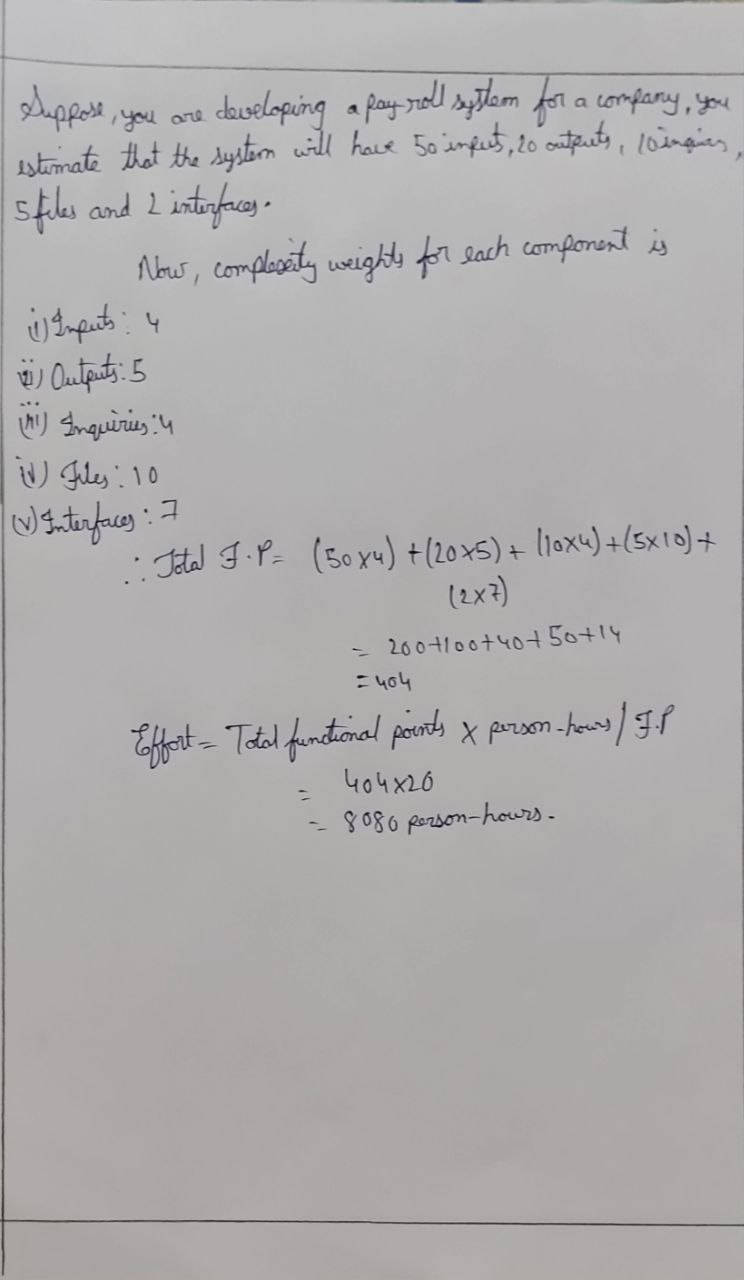 Suppose, you are developing a pay-roll system for a company, you
estimate that the system will have 50 input, 20 outputs, 10 inquiries,
5 files and 2 interfaces.
Now, complexity weights for each component is
(i) Inputs: 4
(ii) Outputs: 5
(iii) Inquiries: 4
(iv) Files: 10
(v) Interfaces: 7
∴ Total F.P = (50x4) + (20x5) + (10x4) + (5x10) +
(2x7)
= 200+100+40+50+14
= 404
Effort = Total functional points x person-hours / F.P
= 404x20
= 8080 person-hours.